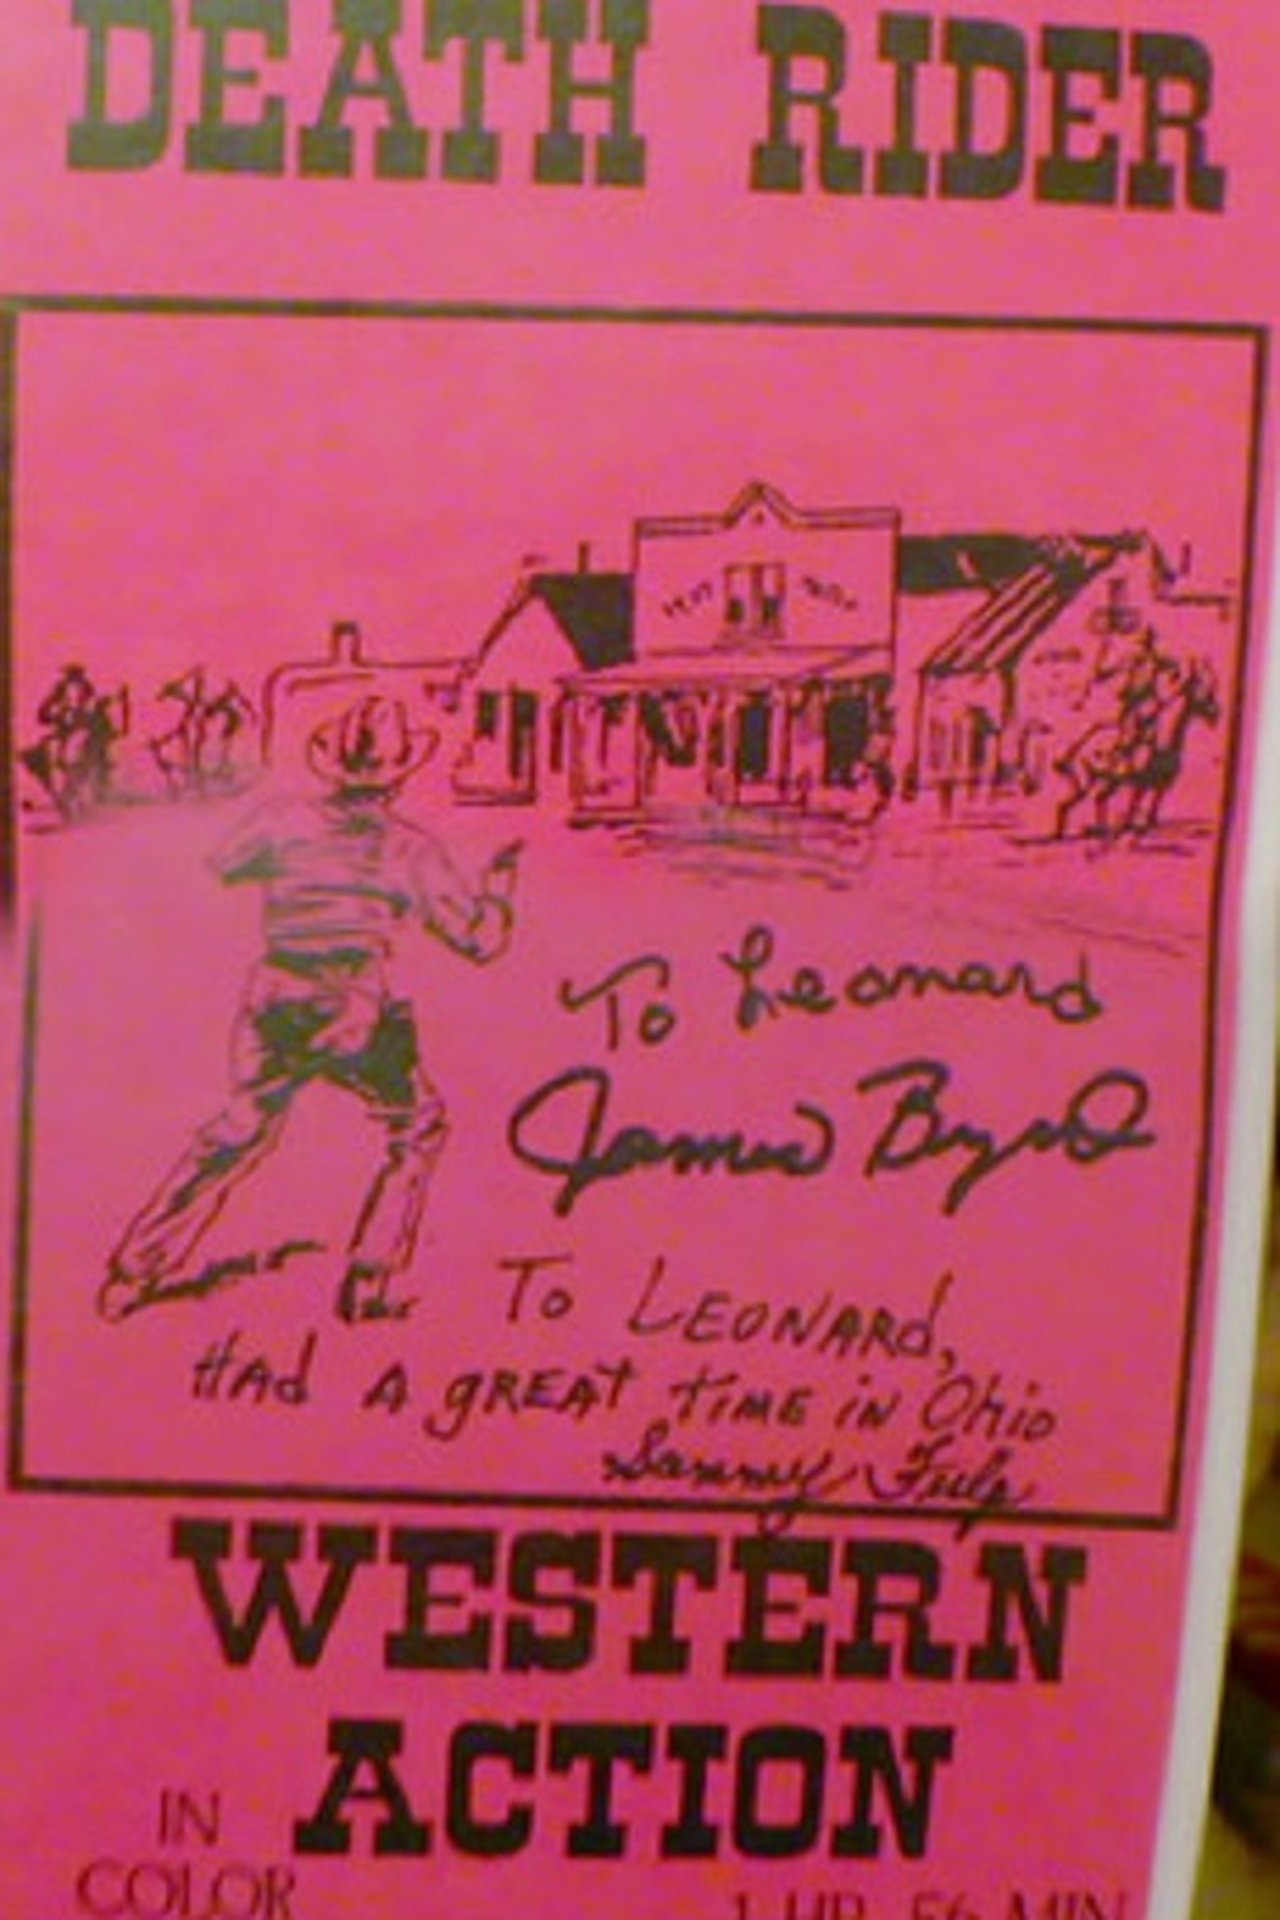 DEATH RIDER
To Leonard
James Byrd
To LEONARd,
HAd A gREAT TiME iN Ohio
Sammy Fulp
WESTERN
ACTION
IN
COLOR
1 HR. 56 MIN